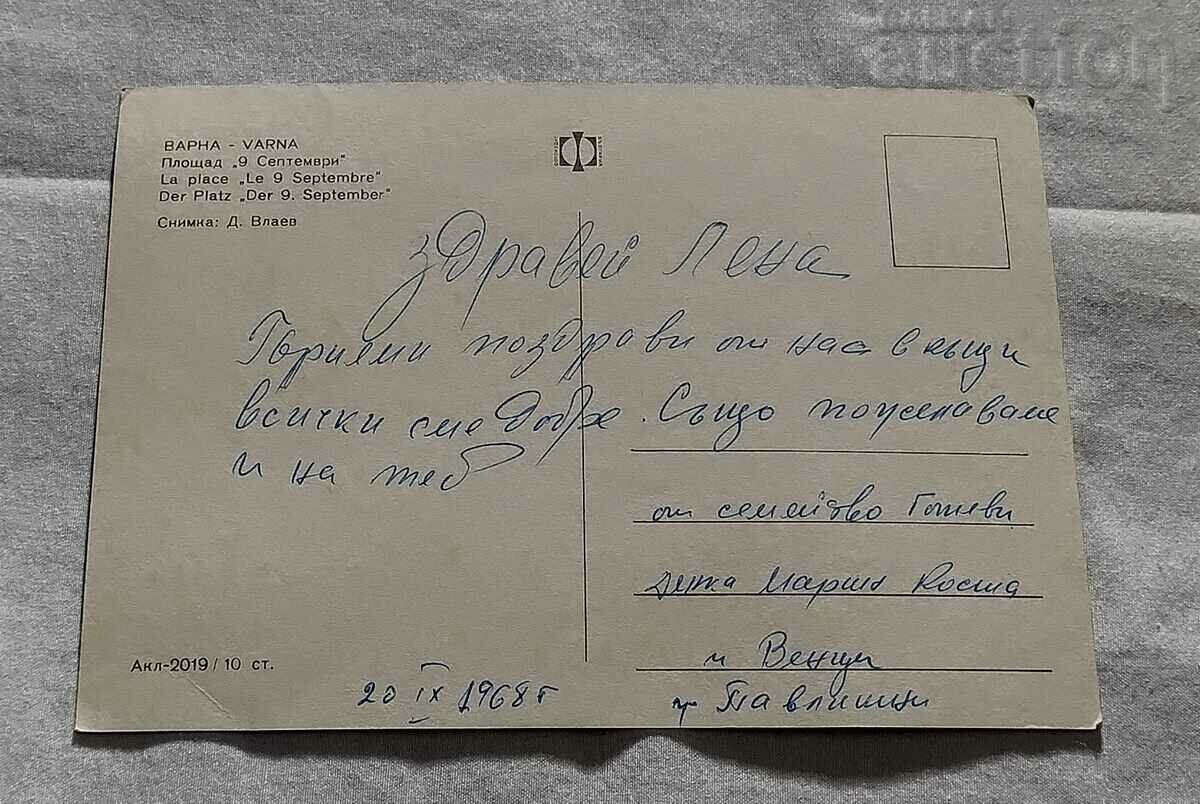 ВАРНА - VARNA
Площад „9 Септември"
La place „Le 9 Septembre"
Der Platz „Der 9. September"
Снимка: Д. Влаев
здравей Лена
поздрави от нас в къщи
всички сме добре. Също пожелаваме
и на теб
от семейство Гошеви
Марин Коста
и Венци
Акл-2019 / 10 ст.
20 IX 1968 г
гр Павликени
AUCTION